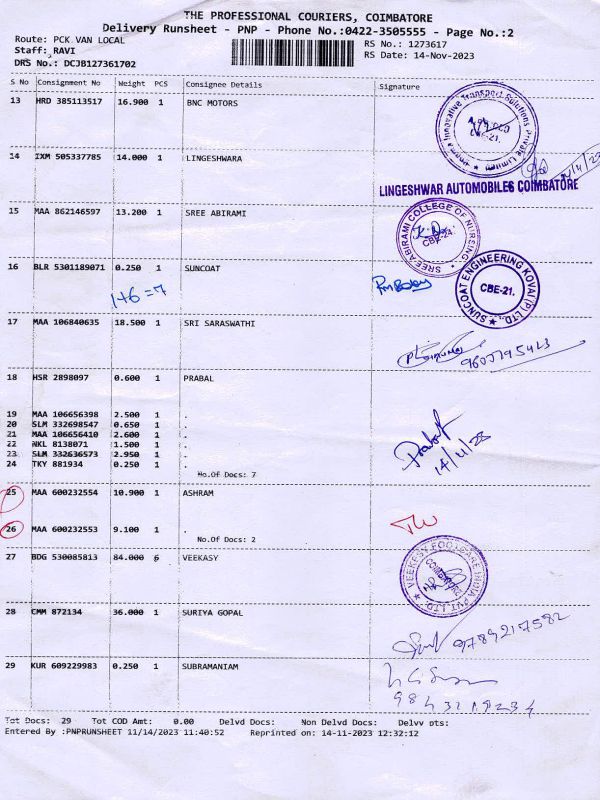 THE PROFESSIONAL COURIERS, COIMBATORE
Delivery Runsheet - PNP - Phone No.:0422-3505555 - Page No.:2
Route: PCK VAN LOCAL
RS No.: 1273617
Staff: RAVI
RS Date: 14-Nov-2023
DRS No.: DCJB127361702
S No Consignment No Weight PCS Consignee Details Signature
13 HRD 385113517 16.900 1 BNC MOTORS
CBE-21.
14 IXM 505337785 14.000 1 LINGESHWARA
LINGESHWAR AUTOMOBILES COIMBATORE
15 MAA 862146597 13.200 1 SREE ABIRAMI
SREE ABIRAMI COLLEGE OF NURSING
CBE-24.
16 BLR 5301189071 0.250 1 SUNCOAT
1+6=7
SUNCOAT ENGINEERING KOVAI (P) LTD.,
CBE-21.
17 MAA 106840635 18.500 1 SRI SARASWATHI
18 HSR 2898097 0.600 1 PRABAL
19 MAA 106656398 2.500 1 .
20 SLM 332698547 0.650 1 .
21 MAA 106656410 2.600 1 .
22 NKL 8138071 1.500 1 .
23 SLM 332636573 2.950 1 .
24 TKY 881934 0.250 1 .
No.Of Docs: 7
14/11/23
25 MAA 600232554 10.900 1 ASHRAM
26 MAA 600232553 9.100 1 .
No.Of Docs: 2
27 BDG 530085813 84.000 6 VEEKASY
VEEKESY FOOTCARE INDIA PVT LTD.
28 CMM 872134 36.000 1 SURIYA GOPAL
9789217582
29 KUR 609229983 0.250 1 SUBRAMANIAM
Tot Docs: 29 Tot COD Amt: 0.00 Delvd Docs: Non Delvd Docs: Delvv pts:
Entered By :PNPRUNSHEET 11/14/2023 11:40:52 Reprinted on: 14-11-2023 12:32:12